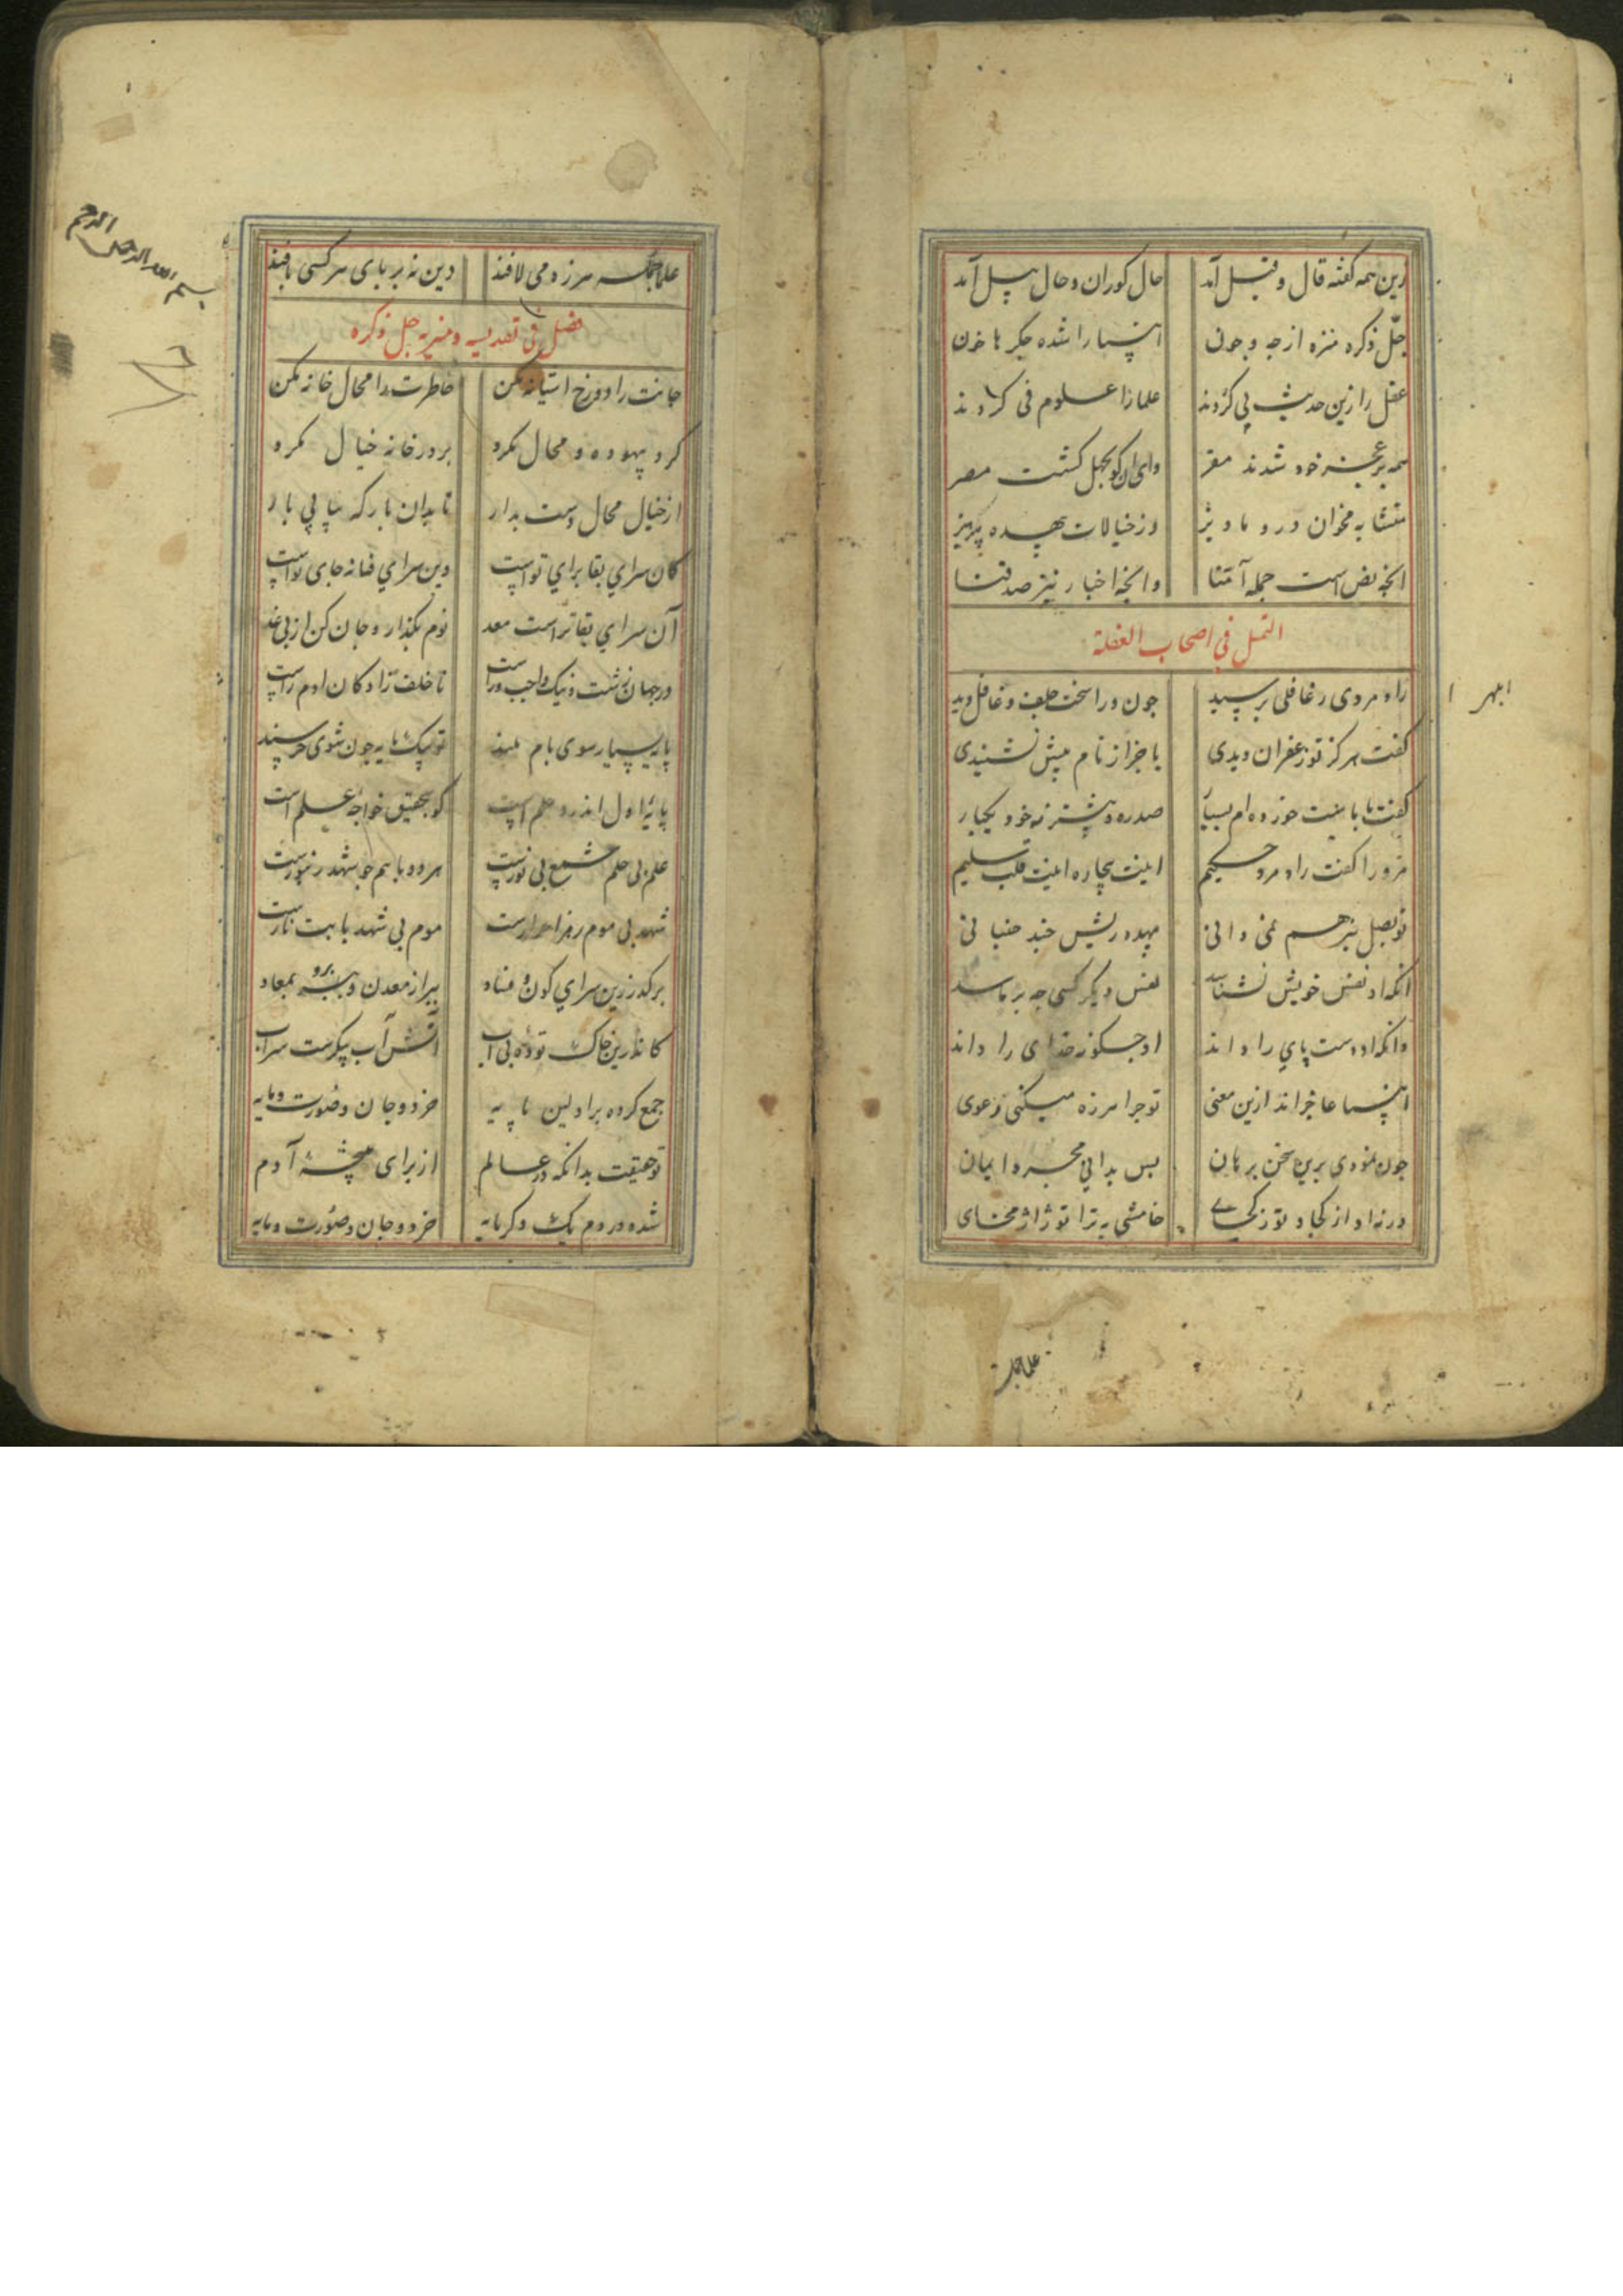 دین همه گفته قال و قیل آمد حال کوران و حال پیل آمد
جلّ ذکره منزه از چه و چون انبیا را شده جگرها خون
عقل را زین حدیث پی کردند علما را علوم فی کردند
همه بر عجز خود شدند مقر وای آن کو بجهل گشت مصر
متشابه مخوان درو ماویز وز خیالات بیهده پرهیز
آنچه نص است جمله آمنّا وانچه اخبار نیز صدقنا
التمثل فی اصحاب الغفلة
رادمردی ز غافلی پرسید چون ورا سخت جلف و غافل دید
ابهر ا
گفت هرگز تو زعفران دیدی یا جز از نام هیچ نشنیدی
گفت با ماست خورده‌ام بسیار صد ره و بیشتر نه خود یکبار
مرورا گفت رادمرد حکیم اینت بیچاره اینت قلب سلیم
تو بصل نیز هم نمی دانی بیهده ریش چند جنبانی
آنکه او نفس خویش نشناسد نفس دیگر کسی چه پرماسد
وانکه او دست پای را داند او چگونه خدای را داند
انبیا عاجزاند ازین معنی تو چرا هرزه میکنی دعوی
چون نمودی برین سخن برهان پس بدانی مجرد ایمان
ورنه او از کجا و تو ز کجای خامشی به ترا تو ژاژ مخای
علما جمله
علما جمله هرزه می لافند دین نه بر پای هر کسی بافند
فصل فی تقدیسه و تنزیه جل ذکره
جانت را دوزخ آشیانه مکن خاطرت را محال خانه مکن
گرد بیهوده و محال مگرد بر در خانه خیال مگرد
از خیال محال دست بدار تا بدان بارگه بیابی بار
کان سرای بقا برای تو است وین سرای فنا نه جای تو است
آن سرای بقا تراست معد یوم بگذار و جان کن از پی غد
در جهان زشت و نیک واجب و راست تا خلف‌زادگان آدم راست
پایه بسیار سوی بام بلند تو بیک پایه چون شوی خرسند
پایهٔ اول اندرو حلم است کو بتحقیق خواجه علم است
علم بی حلم شمع بی نورست هر دو باهم چو شهد زنبورست
شهد بی موم رمز احرارست موم بی شهد بابت نارست
برگذر زین سرای کون و فساد ببر از معدن و برو بمعاد
کاندرین خاک توده بی آب آتش آب پیکرست سراب
جمع کرده بر اولین پایه خرد و جان و صورت و مایه
تو حقیقت بدانکه در عالم از برای نتیجهٔ آدم
شده در دم یک دگر مایه خرد و جان و صورت و مایه
بسم الله الرحمن الرحیم